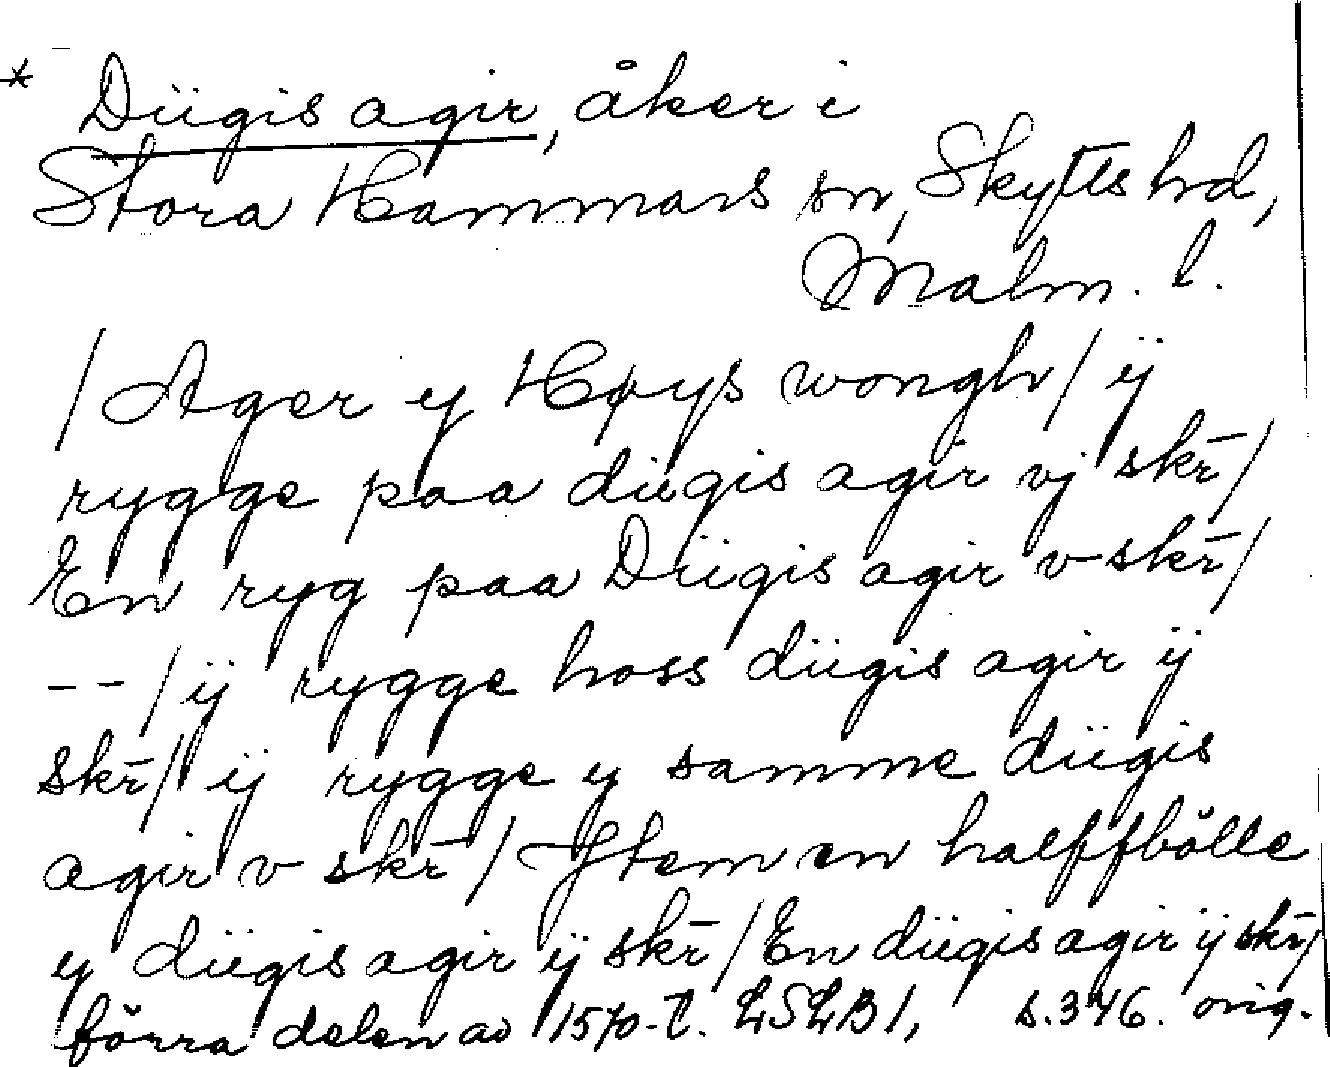 * Dügis agir, åker i
Stora Hammars sn, Skytts hd,
Malm. l.
/ Ager y Høys wongh / ÿ
rygge paa dügis agir vj skr̄ /
En ryg paa Dügis agir v skr̄ /
-- / ÿ rygge hoss dügis agir ÿ
skr̄ / ÿ rygge y samme dügis
agir v skr̄ / Jtem en halffbölle
y dügis agir ÿ skr̄ / En dügis agir ÿ skr̄ /
förra delen av 1570-t. LSLB 1, s. 346. orig.